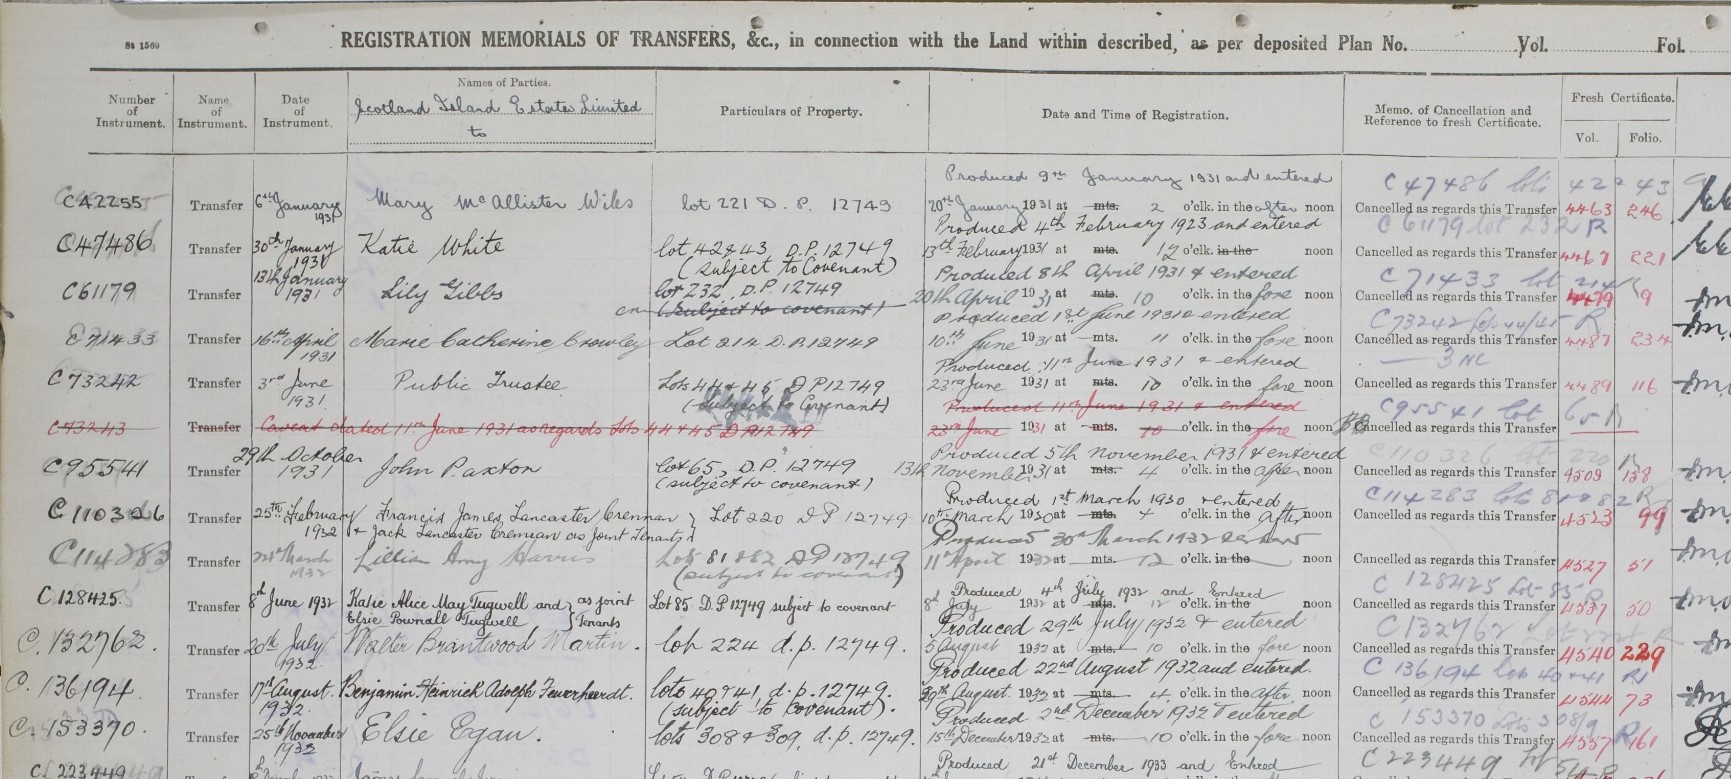 St 1569
REGISTRATION MEMORIALS OF TRANSFERS, &c., in connection with the Land within described, as per deposited Plan No. Vol. Fol.
Number of Instrument. Name of Instrument. Date of Instrument. Names of Parties. Particulars of Property. Date and Time of Registration. Memo. of Cancellation and Reference to fresh Certificate. Fresh Certificate. Vol. Folio.
Scotland Island Estates Limited
to
Produced 9th January 1931 and entered C47486 lots 42 43
C42255 Transfer 6th January 1931 Mary McAllister Wiles lot 221 D. P. 12749 20th January 1931 at mts. 2 o'clk. in the after noon Cancelled as regards this Transfer 4463 246
Produced 4th February 1923 and entered C61179 lot 232 R
C47486 Transfer 30th January 1931 Katie White lot 42 & 43 D.P. 12749 13th February 1931 at mts. 12 o'clk. in the noon Cancelled as regards this Transfer 4467 221
(Subject to Covenant)
Produced 8th April 1931 & entered C71433 lot 214 R
C61179 Transfer 13th January 1931 Lily Gibbs lot 232, D.P. 12749 20th April 1931 at mts. 10 o'clk. in the fore noon Cancelled as regards this Transfer 4479 9
(Subject to covenant)
Produced 1st June 1931 & entered C73242 lots 44/45 R
C71433 Transfer 16th April 1931 Marie Catherine Crowley Lot 214 D.P. 12749 10th June 1931 at mts. 11 o'clk. in the fore noon Cancelled as regards this Transfer 4487 234
Produced 11th June 1931 & entered — 3 NC
C73242 Transfer 3rd June 1931 Public Trustee Lots 44 & 45 D P 12749 23rd June 1931 at mts. 10 o'clk. in the fore noon Cancelled as regards this Transfer 4489 116
(Subject to Covenant)
Produced 11th June 1931 & entered C95541 lot 65 R
C73243 Transfer Caveat dated 11th June 1931 as regards lots 44 & 45 D P 12749 23rd June 1931 at mts. 10 o'clk. in the fore noon Cancelled as regards this Transfer
Produced 5th November 1931 & entered C110326 lot 220 R
C95541 Transfer 29th October 1931 John Paxton lot 65, D.P. 12749 13th November 1931 at mts. 4 o'clk. in the after noon Cancelled as regards this Transfer 4509 138
(subject to covenant)
Produced 1st March 1930 & entered C114283 lots 81 & 82 R
C110326 Transfer 25th February 1932 Francis James Lancaster Crennan Lot 220 D P 12749 10th March 1930 at mts. 4 o'clk. in the After noon Cancelled as regards this Transfer 4523 99
& Jack Lancaster Cremean as Joint Tenants
Produced 30th March 1932
C114283 Transfer 24th March 1932 Lillian Amy Harris Lots 81 & 82 D P 12749 11th April 1932 at mts. 12 o'clk. in the noon Cancelled as regards this Transfer 4527 51
(subject to covenant)
Produced 4th July 1932 and Entered C 128425 Lot 85 R
C 128425. Transfer 8th June 1932 Katie Alice May Tugwell and as joint Lot 85 D.P 12749 subject to covenant 8th July 1932 at mts. 12 o'clk. in the noon Cancelled as regards this Transfer 4537 50
Elsie Pownall Tugwell Tenants
Produced 29th July 1932 & entered C132762 Lot 224 R
C. 132762. Transfer 20th July 1932. Walter Brantwood Martin. lot 224 d.p. 12749. 5 August 1932 at mts. 10 o'clk. in the fore noon Cancelled as regards this Transfer 4540 229
Produced 22nd August 1932 and entered. C136194 lots 40 & 41 R
C. 136194. Transfer 17th August. 1932. Benjamin Heinrick Adolph Feuerheerdt. lots 40 & 41, d.p. 12749. 30th August. 1932 at mts. 4 o'clk. in the after noon Cancelled as regards this Transfer 4544 73
(subject to Covenant).
Produced 2nd December 1932 & entered C 153370 Lots 308/9
C. 153370. Transfer 25th November 1932 Elsie Egan. lots 308 & 309, d.p. 12749. 15th December 1932 at mts. 10 o'clk. in the fore noon Cancelled as regards this Transfer 4557 161
Produced 21st December 1933 and Entered C223449 Lot
C. 223449